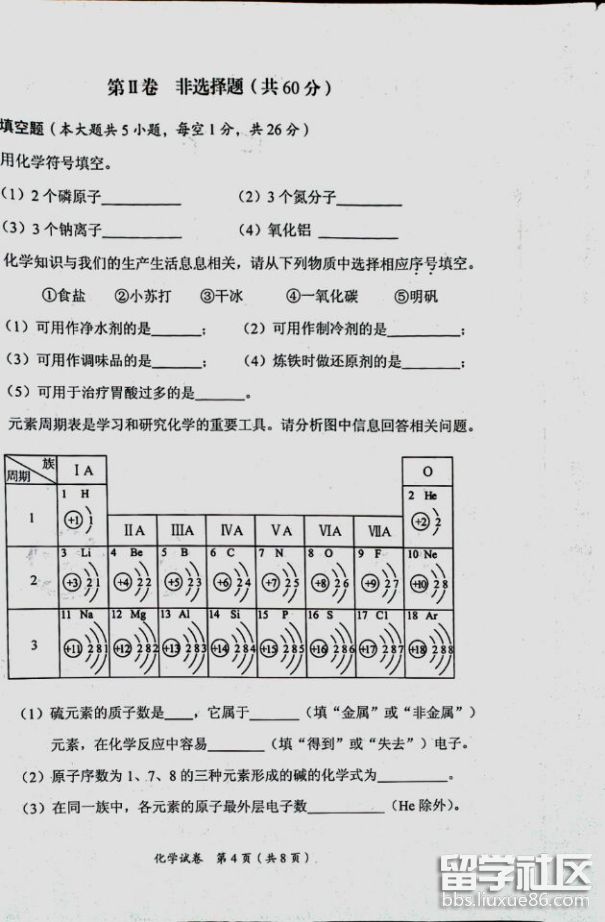 第Ⅱ卷 非选择题(共60分)
填空题(本大题共5小题,每空1分,共26分)
用化学符号填空。
(1)2个磷原子________ (2)3个氮分子________
(3)3个钠离子________ (4)氧化铝 ________
化学知识与我们的生产生活息息相关,请从下列物质中选择相应序号填空。
①食盐 ②小苏打 ③干冰 ④一氧化碳 ⑤明矾
(1)可用作净水剂的是______; (2)可用作制冷剂的是______;
(3)可用作调味品的是______; (4)炼铁时做还原剂的是______;
(5)可用于治疗胃酸过多的是______。
元素周期表是学习和研究化学的重要工具。请分析图中信息回答相关问题。
族 周期 ⅠA O
1 1 H +1 1 2 He +2 2
ⅡA ⅢA ⅣA ⅤA ⅥA ⅦA
2 3 Li +3 2 1 4 Be +4 2 2 5 B +5 2 3 6 C +6 2 4 7 N +7 2 5 8 O +8 2 6 9 F +9 2 7 10 Ne +10 2 8
3 11 Na +11 2 8 1 12 Mg +12 2 8 2 13 Al +13 2 8 3 14 Si +14 2 8 4 15 P +15 2 8 5 16 S +16 2 8 6 17 Cl +17 2 8 7 18 Ar +18 2 8 8
(1)硫元素的质子数是____,它属于______(填“金属”或“非金属”)
元素,在化学反应中容易______(填“得到”或“失去”)电子。
(2)原子序数为1、7、8的三种元素形成的碱的化学式为________。
(3)在同一族中,各元素的原子最外层电子数________(He除外)。
化学试卷 第4页(共8页)
留学社区
bbs.liuxue86.com